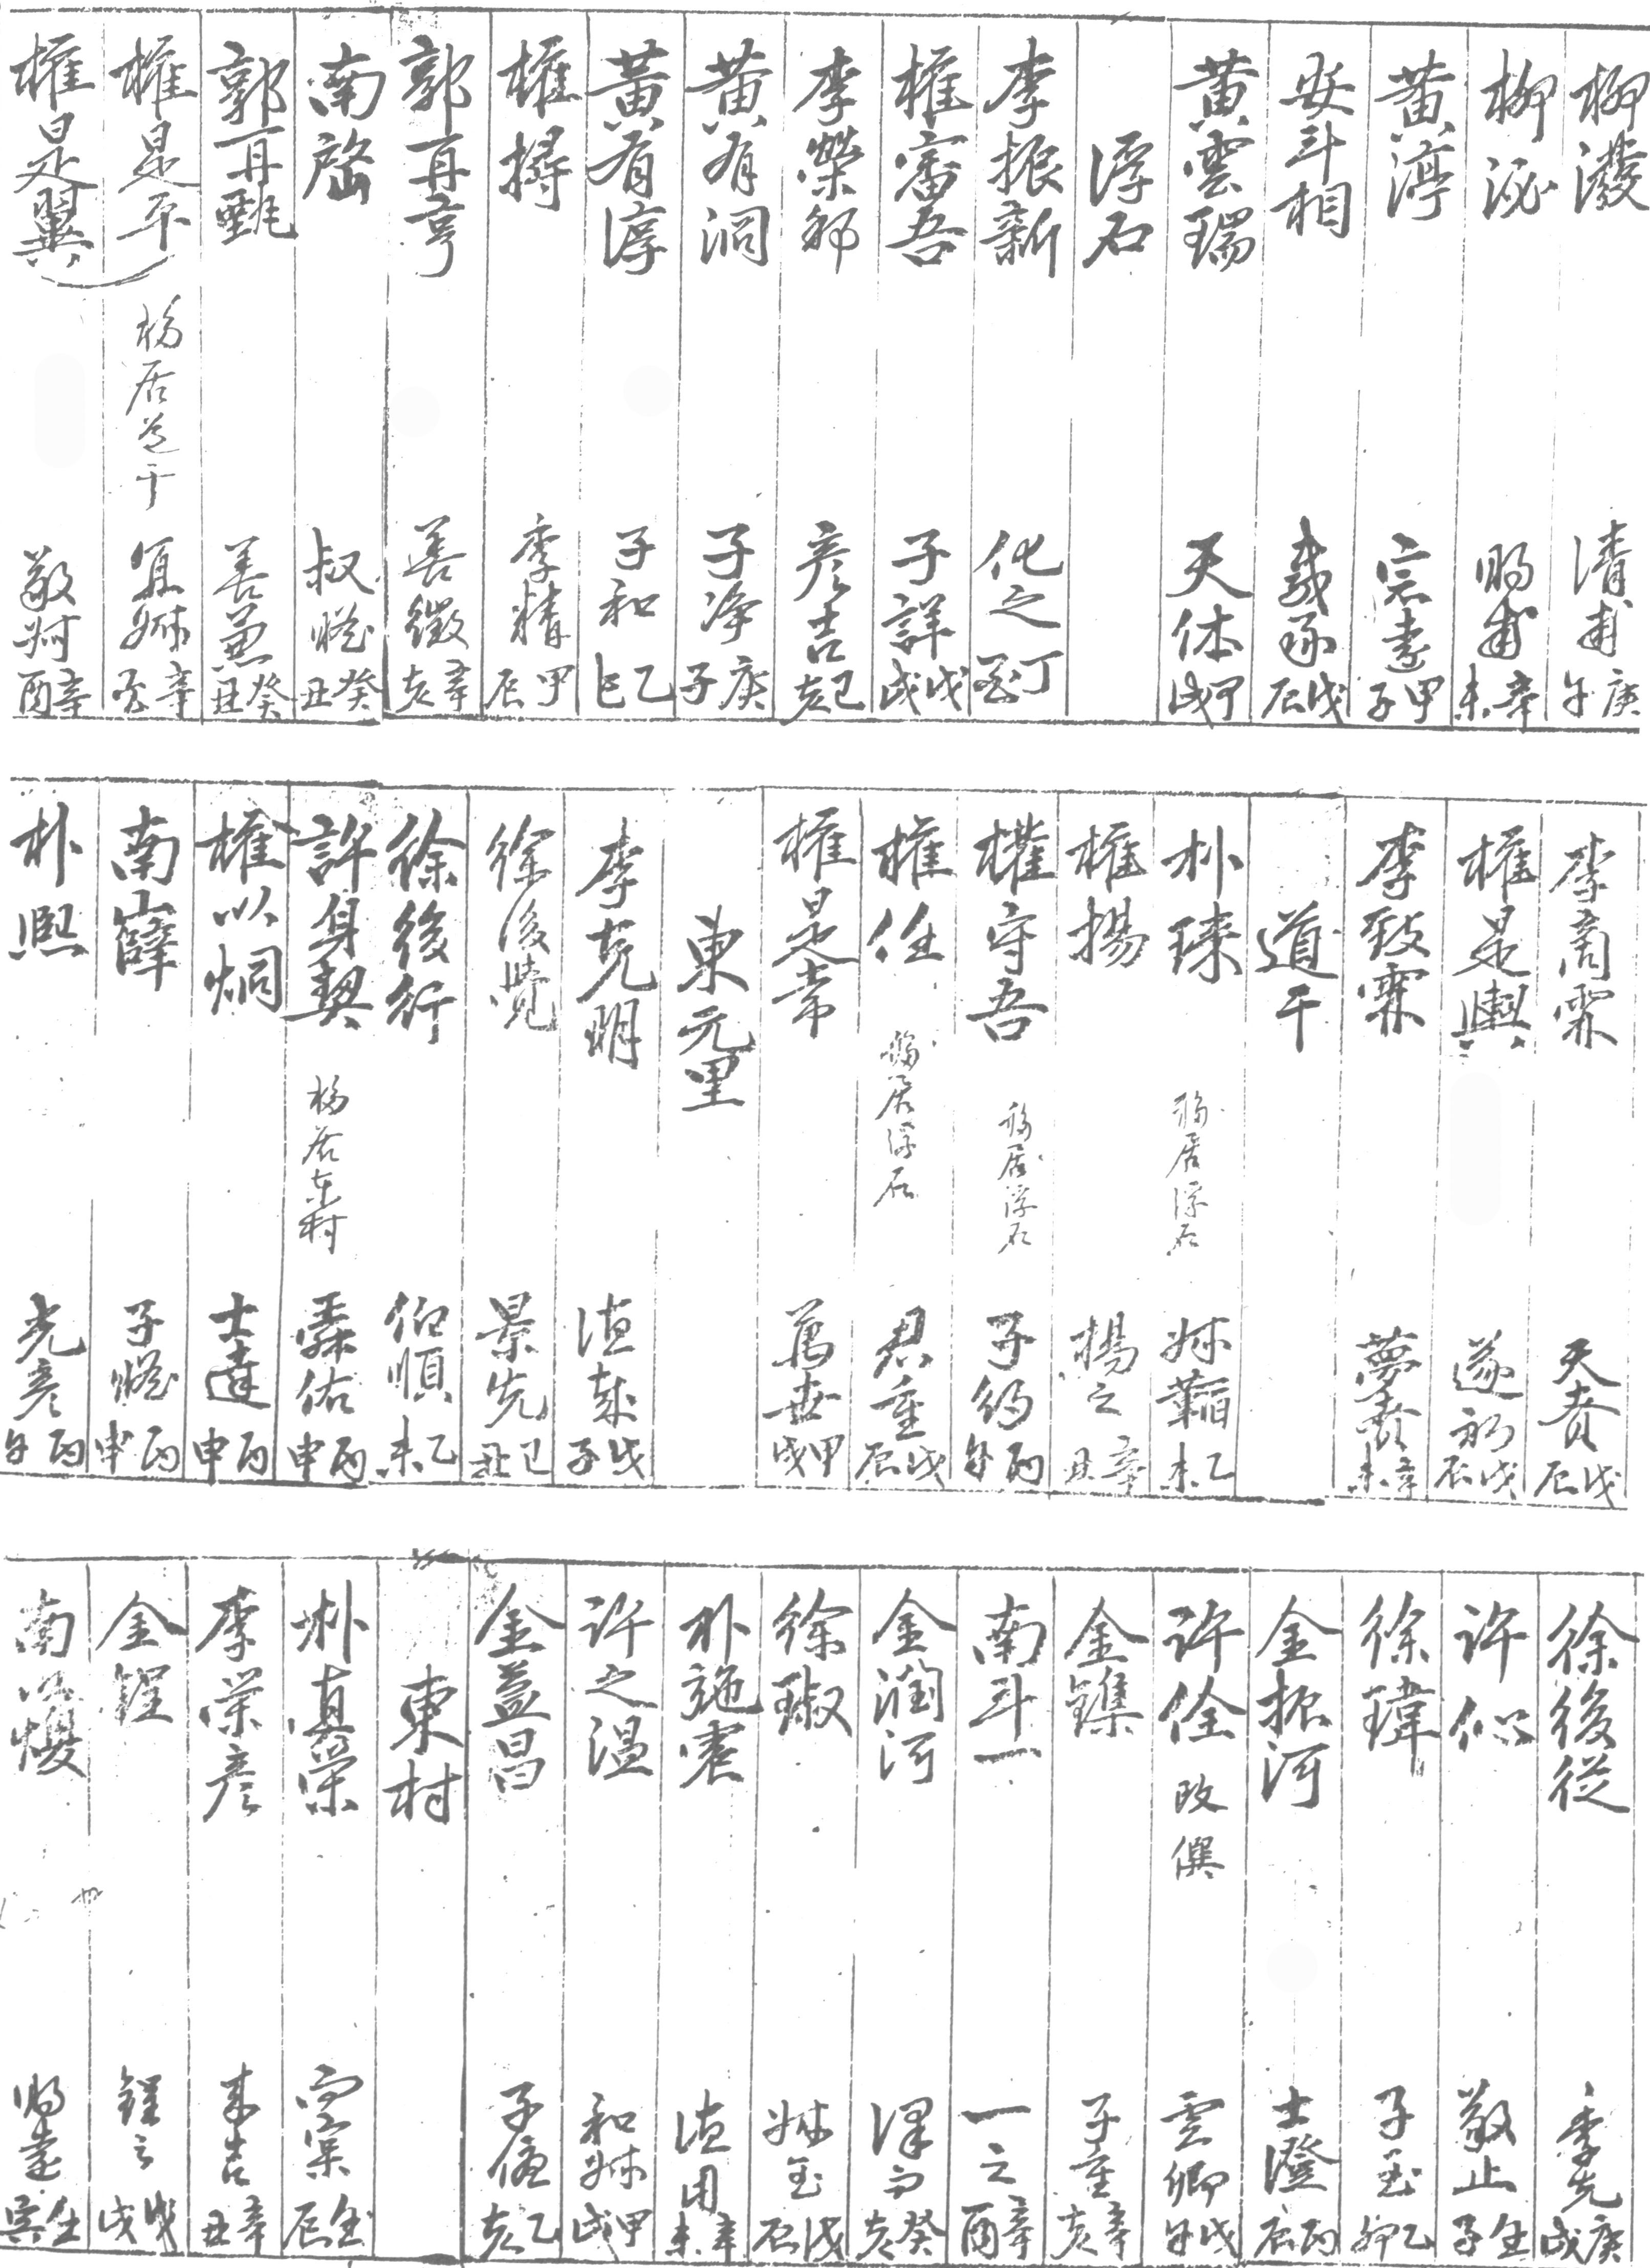 柳濚 清甫 庚午
柳泌 賜甫 辛未
黃濘 宗遠 甲子
安斗相 戊辰
黃雲瑞 天休 甲戌
浮石
李振新 化之 丁
權審吾 子詳 戊戌
李榮邦 彦吉 己亥
黃有洞 子净 庚子
黃有淳 子和 乙巳
權撏 季精 甲辰
郭再亨 善徵 辛亥
南 叔 癸丑
郭再 善兼 癸丑
權是平 移居道干 宜姊 辛
權是翼 敬 辛酉
李商霖 天賚 戊辰
權是輿 遂初 戊辰
李致霖 夢賚 辛未
道干
朴 移居浮石 乙未
權揚 揚之 辛丑
權守吾 移居浮石 子約 丙午
權任 移居浮石 君重 戊辰
權是常 萬世 甲戌
東元里
李克明 戊子
徐後覺 景先 己丑
徐後行 伯順 乙未
許身契 移居東村 舜佑 丙申
權以炯 士達 丙申
南嶭 子 丙申
朴熙 光彦 丙午
徐後從 季先 庚戌
許似 敬止 壬子
徐瑋 子玉 乙卯
金振河 士澄 丙辰
許佺 改僎 雲卿 戊午
金鏶 子章 辛亥
南斗一 一之 辛酉
金潤河 澤 癸亥
徐琡 姊玉 戊辰
朴施 用 辛未
許之温 和姊 甲戌
金益昌 子 乙亥
東村
朴真榮 壬辰
李榮彦 來吉 辛丑
金鋥 鋥之 戊戌
南 賜遠 壬寅